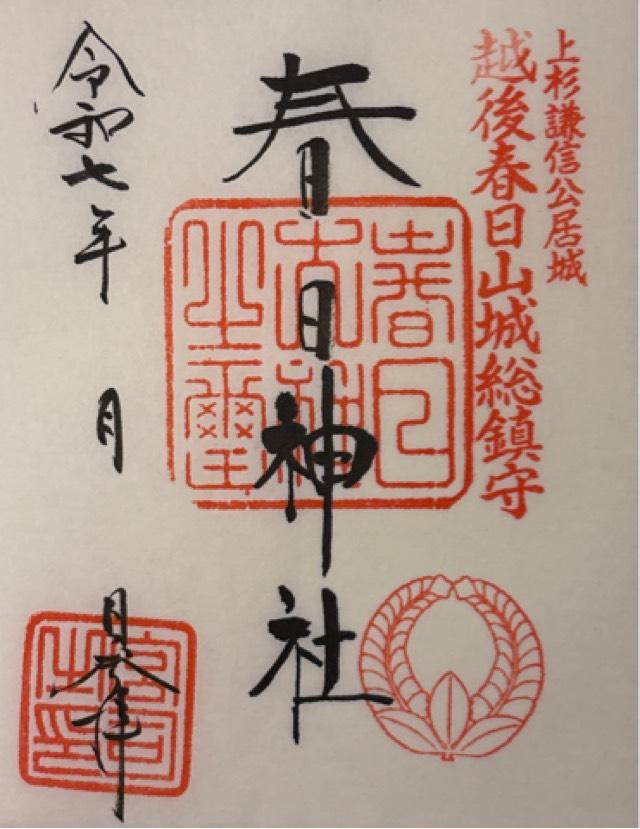 上杉謙信公居城
越後春日山城総鎮守
春日神社
令和七年 月 日参拝